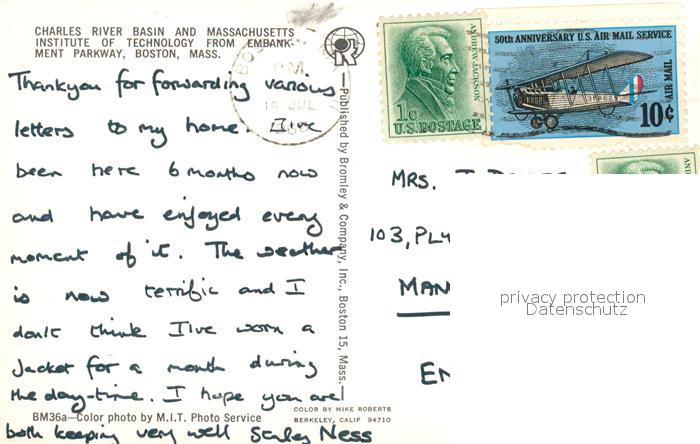 CHARLES RIVER BASIN AND MASSACHUSETTS
INSTITUTE OF TECHNOLOGY FROM EMBANK-
MENT PARKWAY, BOSTON, MASS.
Thankyou for forwarding various
letters to my home. I've
been here 6 months now
and have enjoyed every
moment of it. The weather
is now terrific and I
don't think I've worn a
Jacket for a month during
the day-time. I hope you are
both keeping very well Ness
BM36a—Color photo by M.I.T. Photo Service
COLOR BY MIKE ROBERTS
BERKELEY, CALIF 94710
Published by Bromley & Company, Inc., Boston 15, Mass.
P.M.
18 JUL
ANDREW JACKSON
1c
U.S. POSTAGE
50th ANNIVERSARY U.S. AIR MAIL SERVICE
AIR MAIL
10¢
MRS.
103,
MAN
privacy protection
Datenschutz